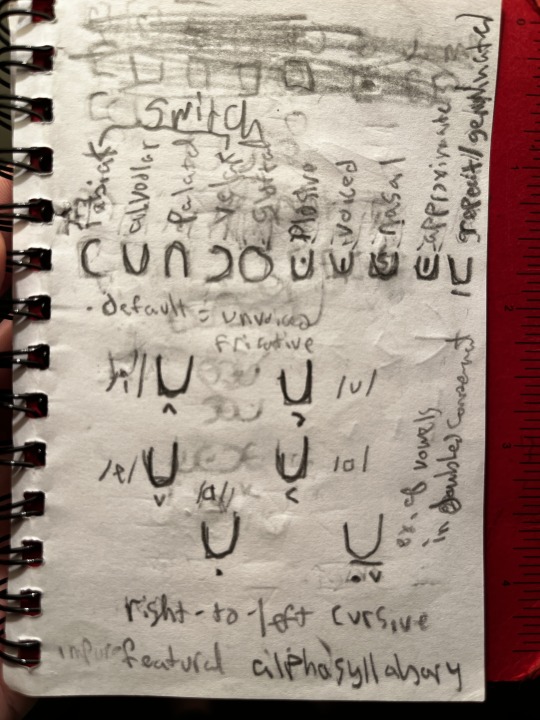 Switch
labial
alvolar
Palatal
Velar
Glottal
Plosive
voiced
nasal
approximate
geminated
• default = unvoiced
fricative
/i/ /u/
/e/ /o/
/a/
ex. of vowels
in doubled consonant
right-to-left cursive
impure featural alphasyllabary